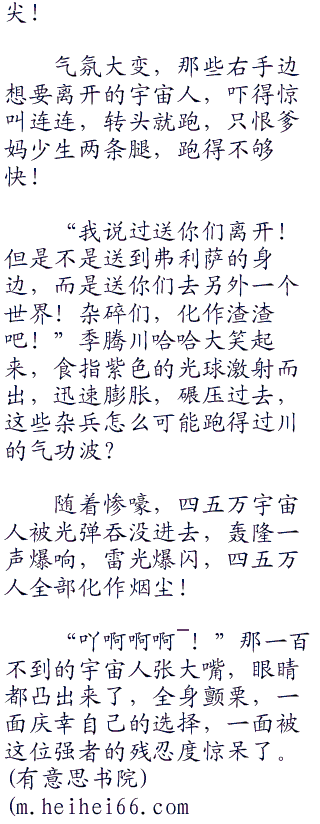 尖！
气氛大变，那些右手边
想要离开的宇宙人，吓得惊
叫连连，转头就跑，只恨爹
妈少生两条腿，跑得不够
快！
“我说过送你们离开！
但是不是送到弗利萨的身
边，而是送你们去另外一个
世界！杂碎们，化作渣渣
吧！”季腾川哈哈大笑起
来，食指紫色的光球激射而
出，迅速膨胀，碾压过去，
这些杂兵怎么可能跑得过川
的气功波？
随着惨嚎，四五万宇宙
人被光弹吞没进去，轰隆一
声爆响，雷光爆闪，四五万
人全部化作烟尘！
“吖啊啊啊¯！”那一百
不到的宇宙人张大嘴，眼睛
都凸出来了，全身颤栗，一
面庆幸自己的选择，一面被
这位强者的残忍度惊呆了。
(有意思书院)
(m.heihei66.com